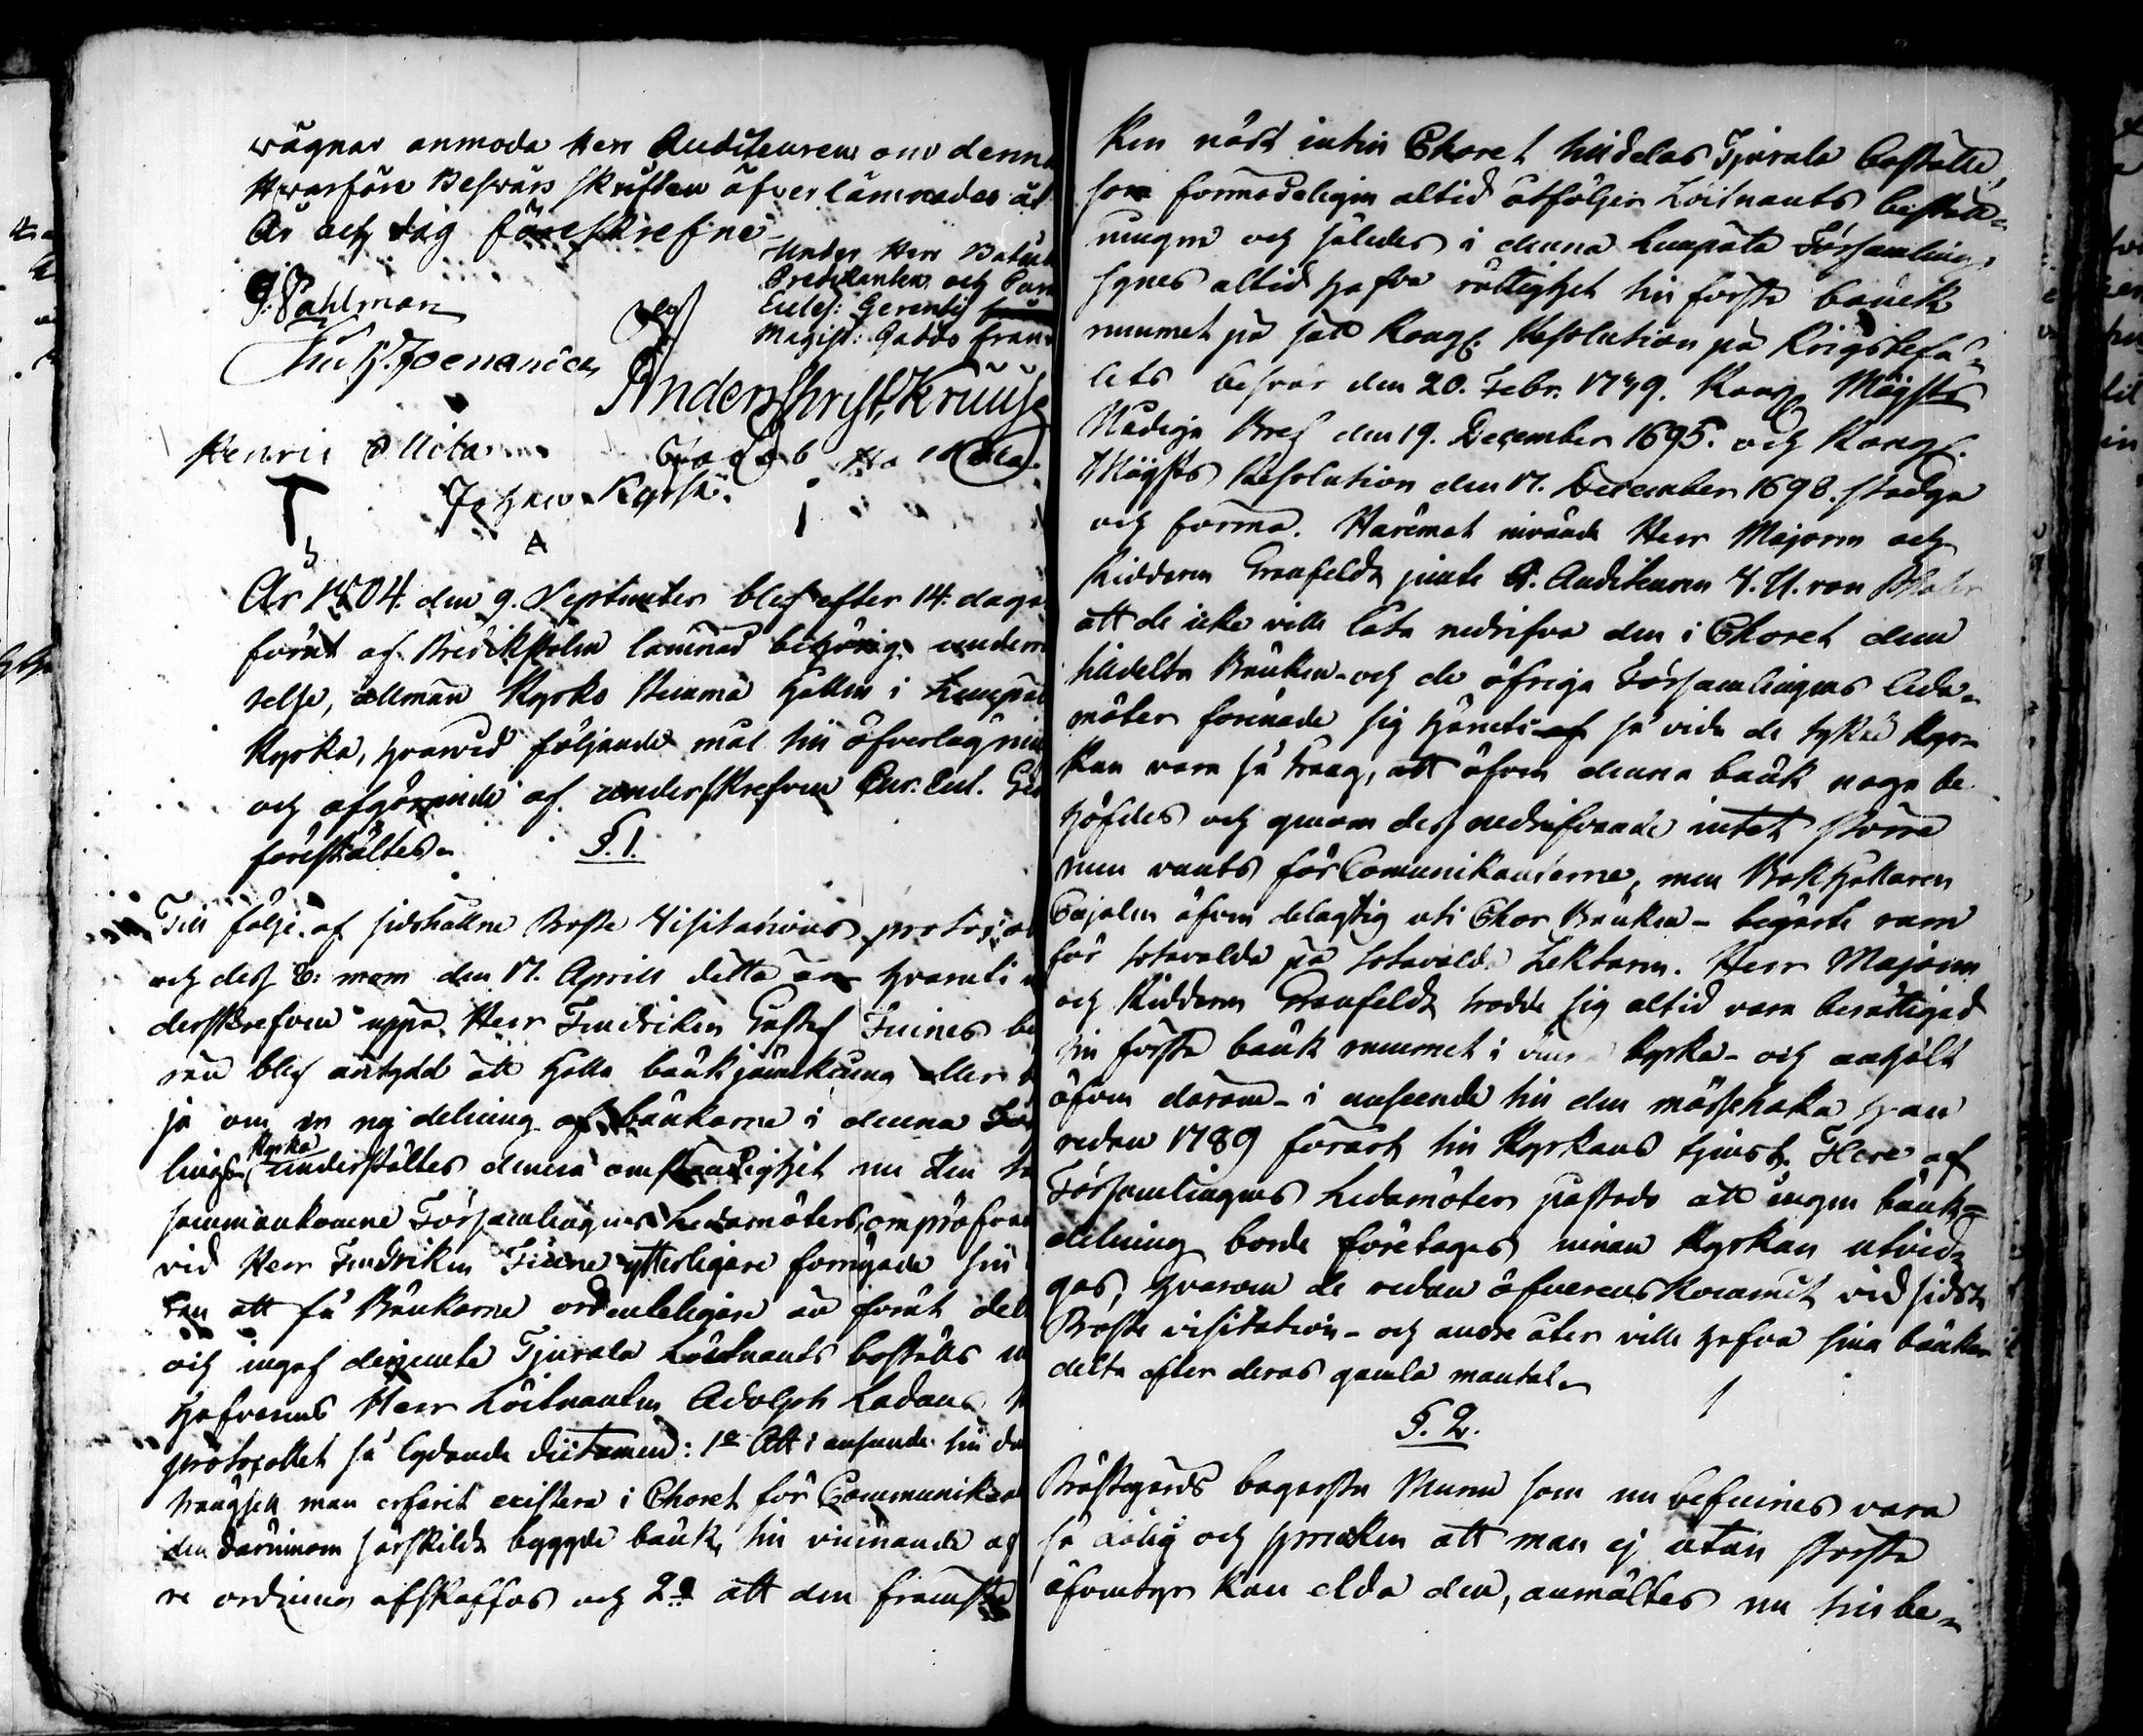 wägnar anmoda Herr Auditeuren om denna
Hwarföre Beswärs skriften öfverlämnades åt
År och dag föreskrefne
Under Herr Batail
Predikanten och Past
Eccles: Gerentis
Magist: Gadds från
G. Pahlman
Anders Christ. Kruuse
Henric
Jacob
Johan
T
A
År 1804. den 9. September blef efter 14. dagar
förut af Predikstolen lämnad behörig underrä
telse, allmän Kyrko Stämma hållen i Lempälä
Kyrka, hvarvid följande mål till öfverläggning
och afgörande af underskrefven Cur. Eccl. Ger
föreställtes.
§. 1.
Till följe af sidsthållne Proste Visitations protocol
och dess 8: mom den 17. April detta år hvaruti un
derskrefven uppå Herr Fendriken Gustaf Fuines be
ran blef antydd att hålla bänkjämkning eller
ja om en ny delning af bänkarne i denna För
Kyrka
lings underställtes denna omständighet nu den
sammankomne Församlingens Ledamöters ompröfvan
vid Herr Fendriken Fuine ytterligare förnyade sin
ran att få Bänkarne ordenteligare än förut del
och ingaf dejemte Tjurala Löitnants boställs in
hafvarens Herr Löitnanten Adolph Ladaus
protocollet så lydande dictamen: 1o Att i anseende till den
trängsel man erfarit existera i Choret för Communikan
den därinom särskildt byggde bänk, till vinnande af
re ordning afskaffas och 2o att den främste
ken näst intill Choret tilldelas Tjurala Boställe,
som förmodeligen altid åtföljer Löitnants beställ-
ningen och således i denna Lempälä Församling,
synes altid hafva rättighet till första bänck
rummet på sätt Kongl. Resolution på Krigsbefä-
lets besvär den 20. Febr. 1739. Kongl Maj:sts
Nådiga Bref den 19. December 1695. och Kongl.
Maj:sts Resolution den 17. December 1698. stadga
och förmå. Häremot invände Herr Majoren och
Ridderen Granfeldt jemte H. Auditeuren V. U. von
att de icke ville låta nedrifva den i Choret dem
tilldelta Bänken - och de öfriga Församlingens Leda-
möter förenade sig häruti så vida de tyckte Kyr-
kan vara så trång, att äfven denna bänk noga be-
höfdes och genom dess nedrifvande intet större
rum vants för Comunikanterne, men Bokhållaren
Cajalen äfven delagtig uti Chor Bänken - begärte rum
för Sotavalda på Sotavalda Lektaren. Herr Majoren
och Ridderen Granfeldt trodde sig altid vara berättigad
till första bänk rummet i denna kyrka - och anhölt
äfven därom - i anseende till den mässehaka han
redan 1789 förärt till Kyrkans tjenst. Flere af
Församlingens Ledamöter påstodo att ingen bänk-
delning borde företagas, innan Kyrkan utvid-
gas, hvarom de redan öfverenskommit vid sidsta
Proste visitation - och andre åter ville hafva sina bänkar
delta efter deras gamla mantal.
§. 2.
Prästegårds bagarstu Muren som nu befinnes vara
så dålig och sprucken att man ej utan största
äfventyr kan elda den, anmältes nu till be-